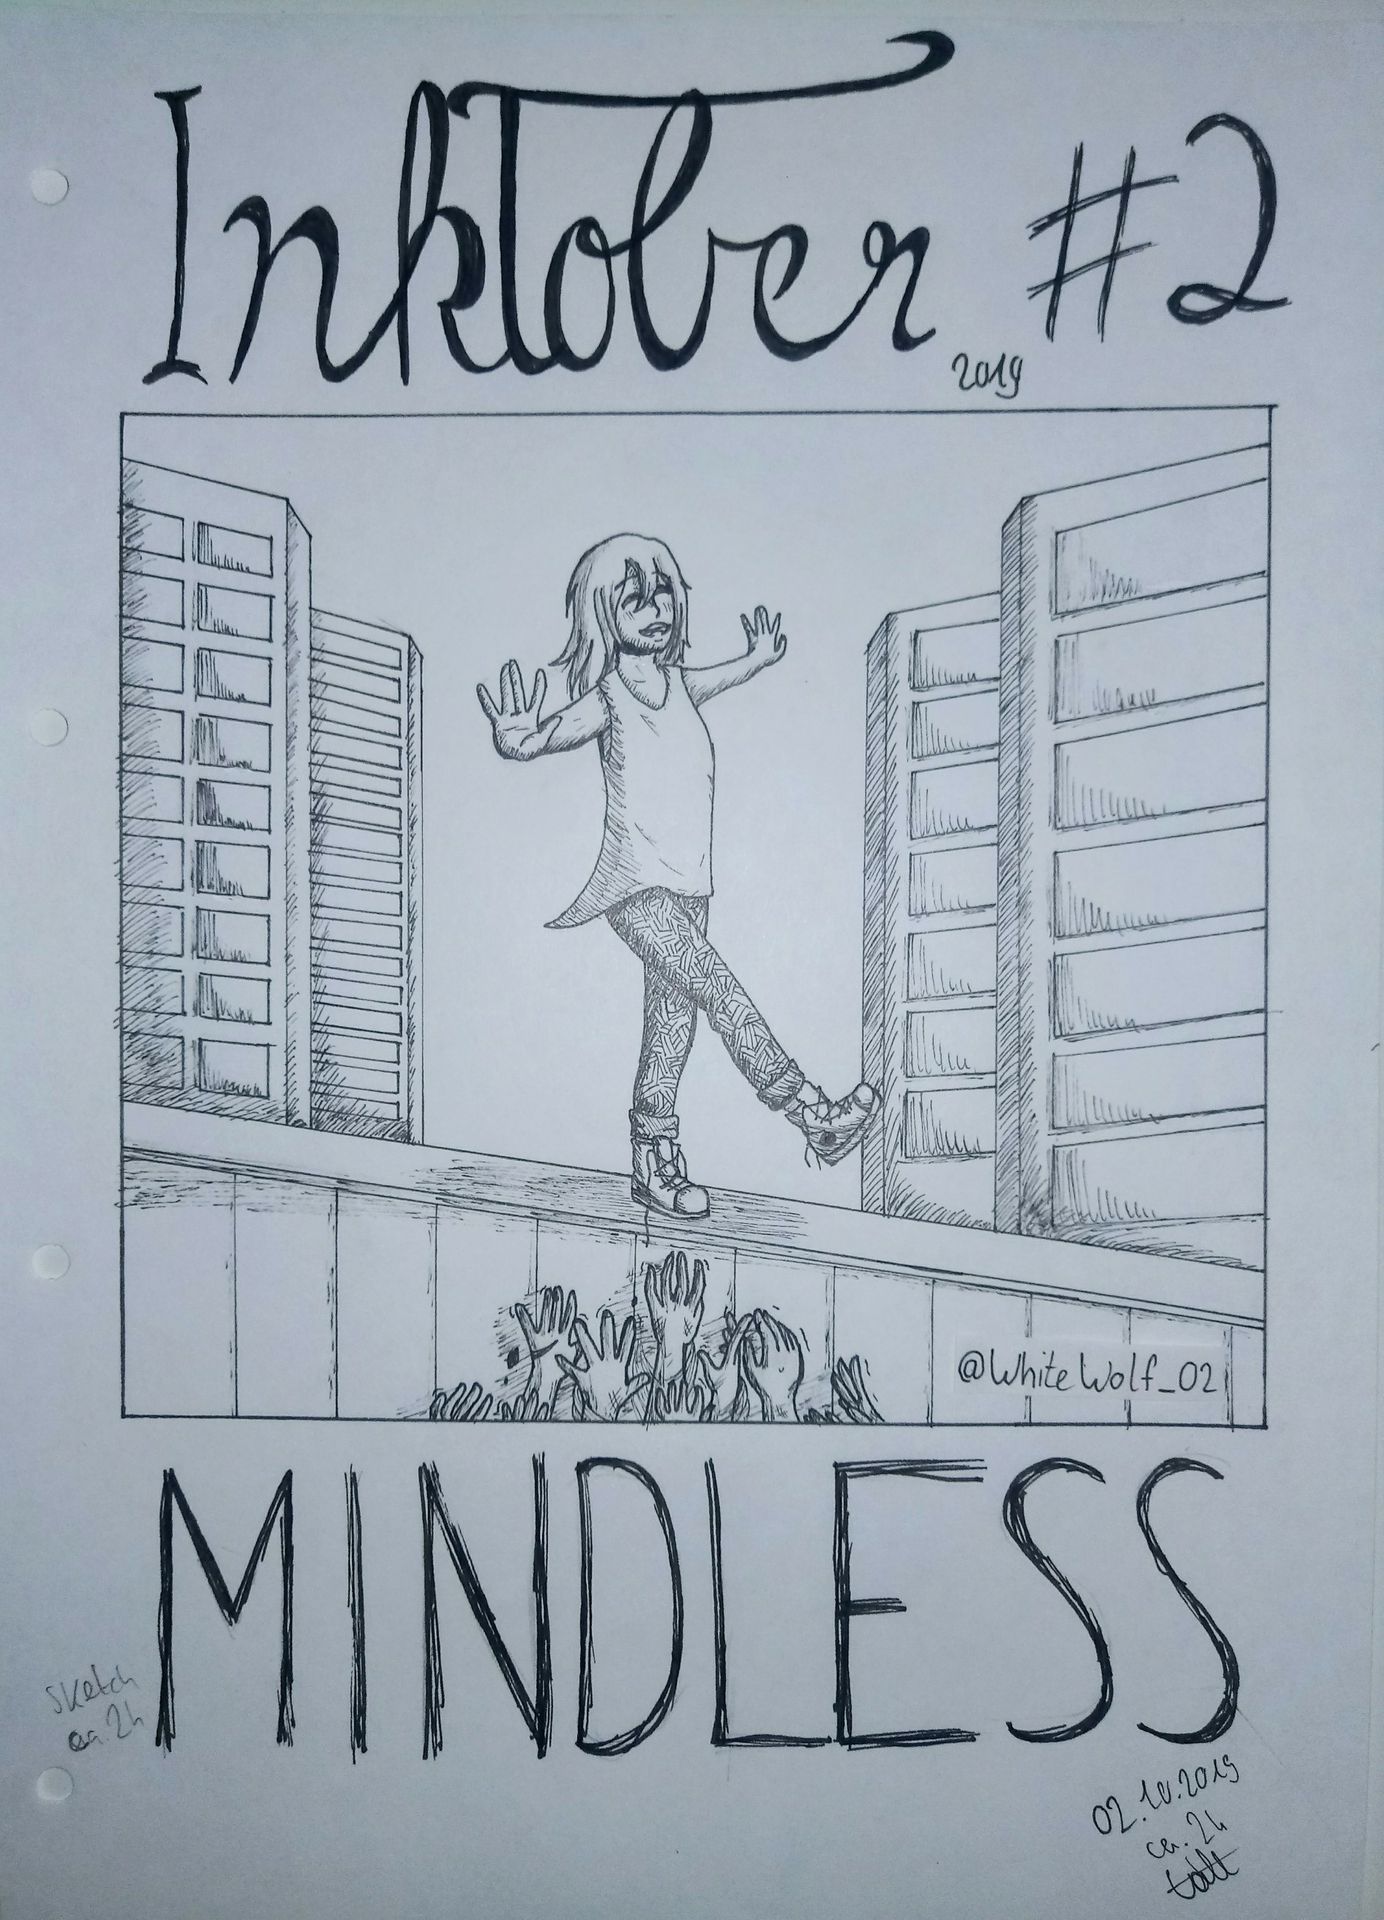 Inktober #2
2019
@WhiteWolf_02
MINDLESS
Sketch
ca. 2h
02.10.2019
ca. 2h